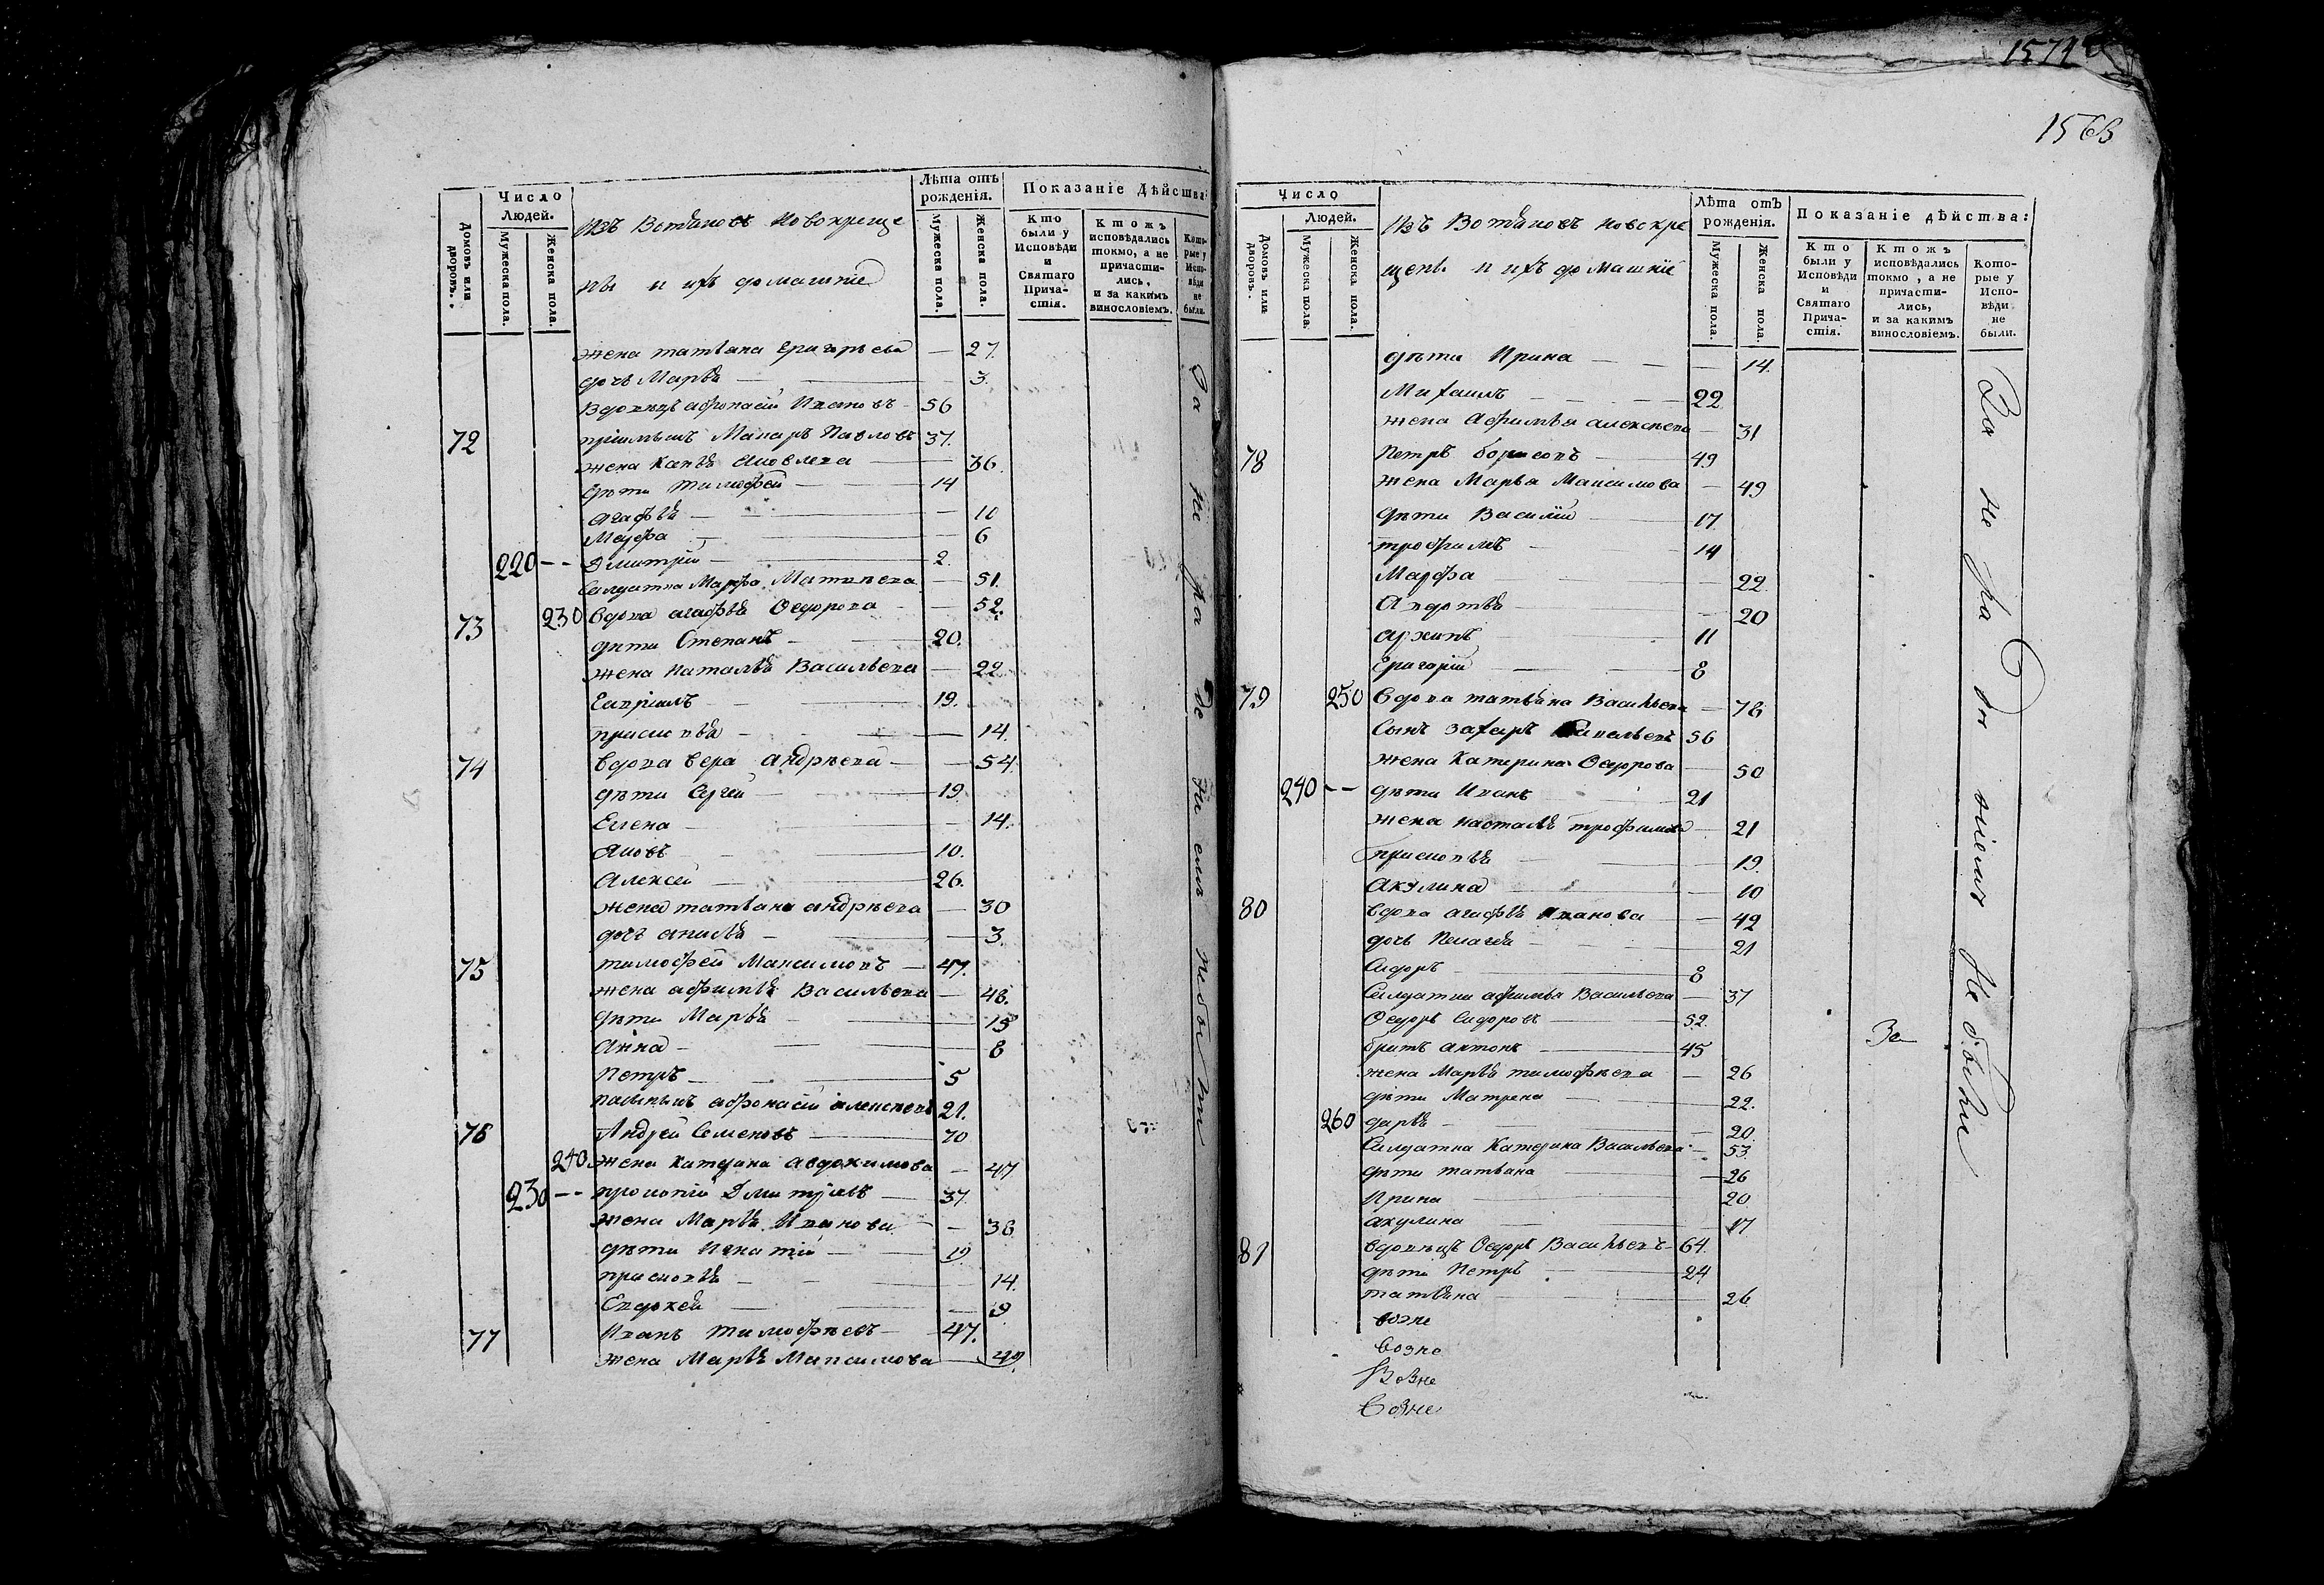 Число
Людей.
Домовъ или дворовъ.
Мужеска пола.
Женска пола.
изъ Вотяковъ новокреще
ны и ихъ домашніе
Лѣта отъ рожденія.
Мужеска пола.
Женска пола.
Показаніе Дѣйства:
Кто были у Исповѣди и Святаго Прича-стія.
Ктожъ исповѣдались токмо, а не причасти-лись, и за какимъ винословіемъ.
Кото-рые у Испо-вѣди не были.
жена татьяна григорьева — 27.
дочь Марья — 3.
Вдовецъ афонасій Ивановъ 56
72 пріимышъ Макаръ Павловъ 37.
жена яковлева — 36.
дѣти тимофей — 14
агафья — 10
Марфа — 6
220 -- Дмитрій — 2.
Салдатка Марфа Матвѣева — 51.
73 230 вдова агафья Ѳедорова — 52.
дѣти Степанъ — 20.
жена наталья Васильева — 22
Гавріилъ — 19.
присковья — 14.
74 вдова вера андрѣева — 54
дѣти Сергей — 19
Елена — 14.
яковъ — 10.
алексей — 26.
жена татьяна андрѣева — 30
дочь анисья — 3.
75 тимофей Максимовъ — 47.
жена афимья Васильева — 48.
дѣти Марья — 15
анна — 8
Петръ — 5
афонасій алексѣевъ 21.
76 Андрей Семеновъ — 70
240 жена катерина авдокимова — 47
230 -- прокопій Дмитріевъ — 37.
жена Марья Иванова — 36
дѣти Игнатій — 19.
присковья — 14.
Евдокея — 9
77 Иванъ тимофѣевъ — 47.
жена Марья Максимова — 49.
не были
1574
1563
Число
Людей.
Домовъ или дворовъ.
Мужеска пола.
Женска пола.
изъ Вотяковъ новокре
щены и ихъ домашніе
Лѣта отъ рожденія.
Мужеска пола.
Женска пола.
Показаніе дѣйства:
Кто были у Исповѣди и Святаго Прича-стія.
Ктожъ исповѣдались токмо, а не причасти-лись, и за какимъ винословіемъ.
Кото-рые у Испо-вѣди не были.
дѣти Ирина — 14.
Михаилъ — 22
жена Афимья алексѣева — 31
78 Петръ борисовъ — 49
жена Марья Максимова — 49
дѣти Василій — 17
трофимъ — 14
Марфа — 22
Авдотья — 20
архипъ — 11
григорій — 8
79 250 вдова татьяна Васильева — 78
Сынъ захаръ 56
жена Катерина Ѳедорова — 50
240 -- дѣти Иванъ — 21
жена насталья трофимова — 21
присковья — 19.
акулина — 10
80 вдова агафья иванова — 42
дочь Пелагея — 21
Сидоръ — 8
Салдатка афимья Васильева — 37
Ѳедоръ Сидоровъ — 52.
братъ антонъ — 45
жена Марья тимофѣева — 26
дѣти Матрена — 22.
260 дарья — 20
Салдатка Катерина Васильева — 53.
дѣти татьяна — 26
Ирина — 20
акулина — 17
81 вдовецъ Ѳедоръ Васильевъ 64.
дѣти Петръ — 24
татьяна — 26
возне
возне
Возне
возне
За
За не ра дѣ ніемъ не были